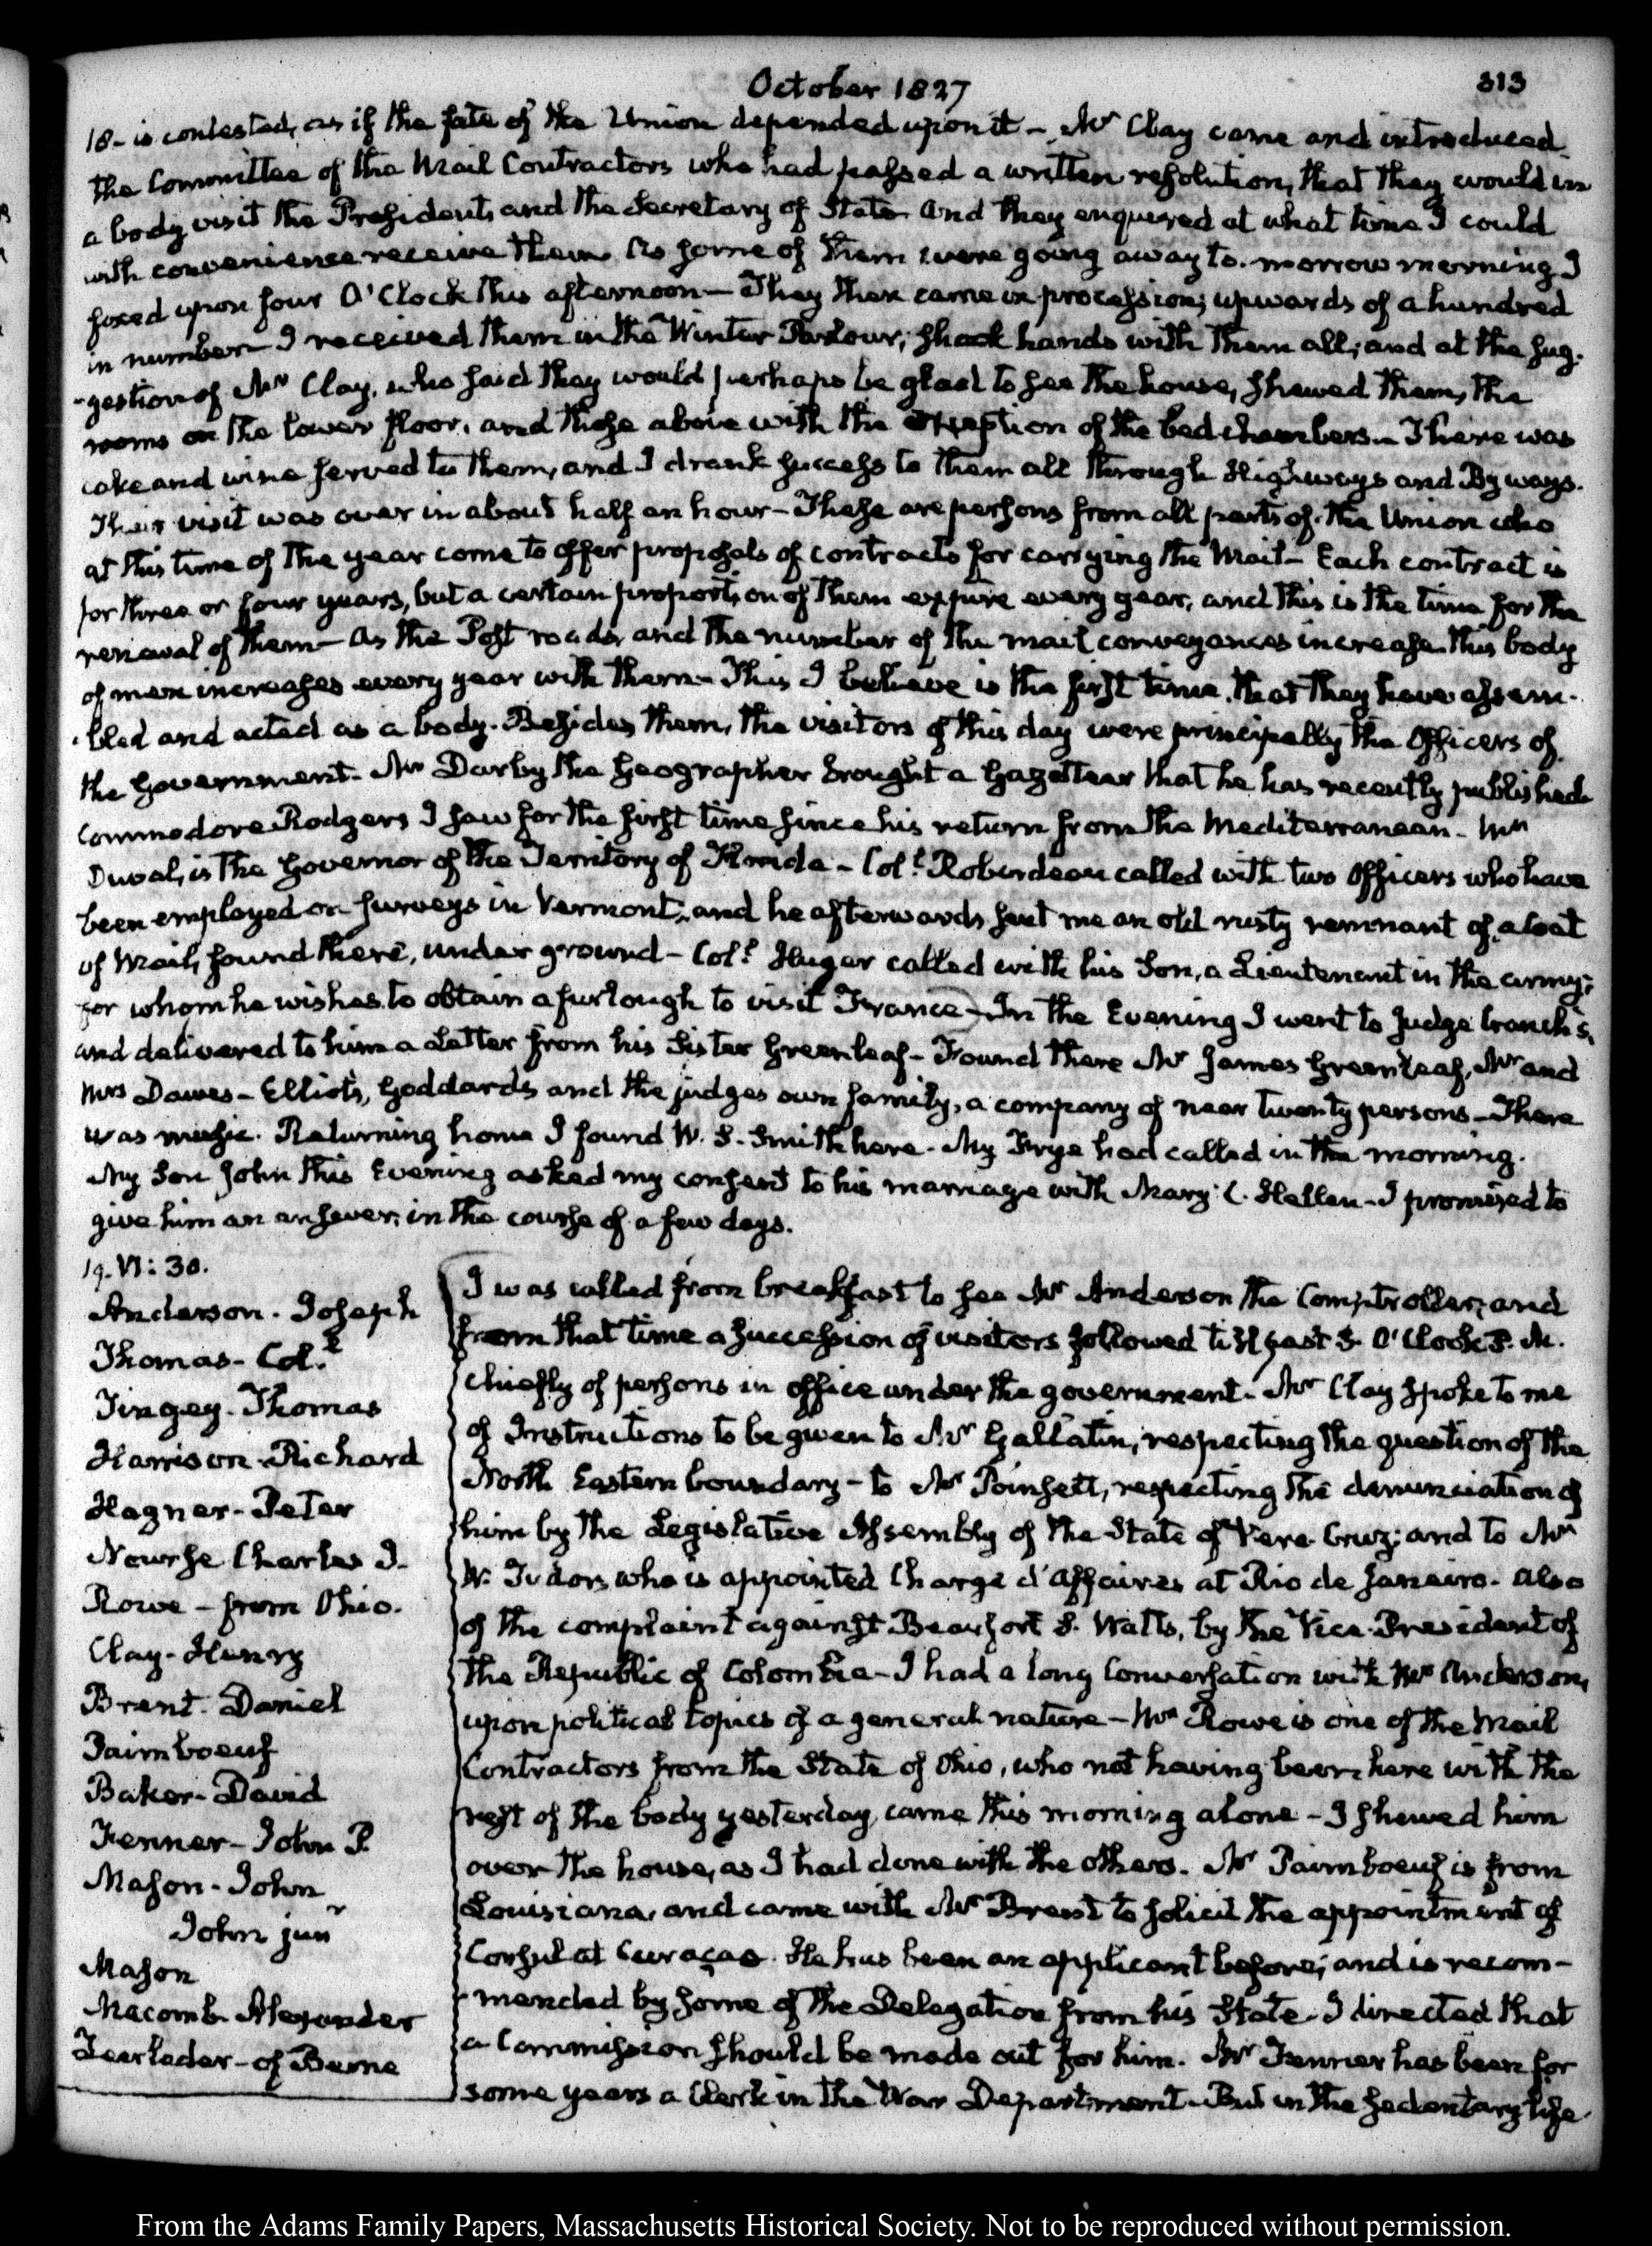 October 1827
313
18- is contested, as if the fate of the Union depended upon it - Mr Clay came and introduced
the Committee of the Mail Contractors who had passed a written resolution, that they would in
a body visit the President, and the Secretary of State and they enquired at what time I could
with convenience receive them. As some of them were going away to-morrow morning I
fixed upon four O'Clock this afternoon - They then came in procession; upwards of a hundred
in number - I received them in the Winter Parlour; shook hands with them all; and at the sug-
-gestion of Mr Clay, who said they would perhaps be glad to see the house, shewed them, the
rooms on the lower floor, and those above with the exception of the bed chambers - There was
cake and wine served to them, and I drank success to them all through Highways and By ways.
Their visit was over in about half an hour - These are persons from all parts of the Union who
at this time of the year come to offer proposals of contracts for carrying the Mail - Each contract is
for three or four years, but a certain proportion of them expire every year, and this is the time for the
renewal of them - As the Post roads, and the number of the mail conveyances increase this body
of men increases every year with them - This I believe is the first time that they have assem-
-bled and acted as a body. Besides them, the visitors of this day were principally the Officers of
the Government. Mr Darby the Geographer brought a Gazetteer that he has recently published
Commodore Rodgers I saw for the first time since his return from the Mediterranean - Mr
Duval, is the Governor of the Territory of Florida - Coll. Roberdeau called with two Officers who have
been employed on surveys in Vermont, and he afterwards sent me an old rusty remnant of a Coat
of Mail, found there, under ground - Coll. Huger called with his Son, a Lieutenant in the army;
for whom he wishes to obtain a furlough to visit France - In the Evening I went to Judge Cranch's,
and delivered to him a Letter from his Sister Greenleaf - Found there Mr James Greenleaf, Mr and
Mrs Dawes - Elliots, Goddards and the judges own family, a company of near twenty persons - There
was music. Returning home I found W. S. Smith here. Mr Frye had called in the morning.
My Son John this Evening asked my consent to his marriage with Mary C. Hellen - I promised to
give him an answer, in the course of a few days.
19. VI: 30.
Anderson - Joseph
Thomas - Coll.
Tingey - Thomas
Harrison - Richard
Hagner - Peter
Nourse Charles J.
Rowe - from Ohio.
Clay - Henry
Brent - Daniel
Paimboeuf
Baker - David
Fenner - John P.
Mason - John
John junr
Mason
Macomb Alexander
of Berne
I was called from breakfast to see Mr Anderson the Comptroller; and
from that time a succession of visitors followed till past 3 O'Clock P.M.
chiefly of persons in office under the government. Mr Clay spoke to me
of Instructions to be given to Mr Gallatin, respecting the question of the
North Eastern boundary - to Mr Poinsett, respecting the denunciation of
him by the Legislative Assembly of the State of Vera Cruz; and to Mr
W. Tudor, who is appointed Chargé d'affaires at Rio de Janeiro. Also
of the complaint against Beaufort T. Watts, by the Vice-President of
the Republic of Colombia - I had a long conversation with Mr Anderson,
upon political topics of a general nature - Mr Rowe is one of the Mail
Contractors from the State of Ohio, who not having been here with the
rest of the body yesterday, came this morning alone - I shewed him
over the house, as I had done with the others. Mr Paimboeuf is from
Louisiana, and came with Mr Brent to solicit the appointment of
Consul at Curaçao. He has been an applicant before; and is recom-
-mended by some of the Delegation from his State - I directed that
a Commission should be made out for him. Mr Fenner has been for
some years a Clerk in the War Department - But in the sedentary life
From the Adams Family Papers, Massachusetts Historical Society. Not to be reproduced without permission.